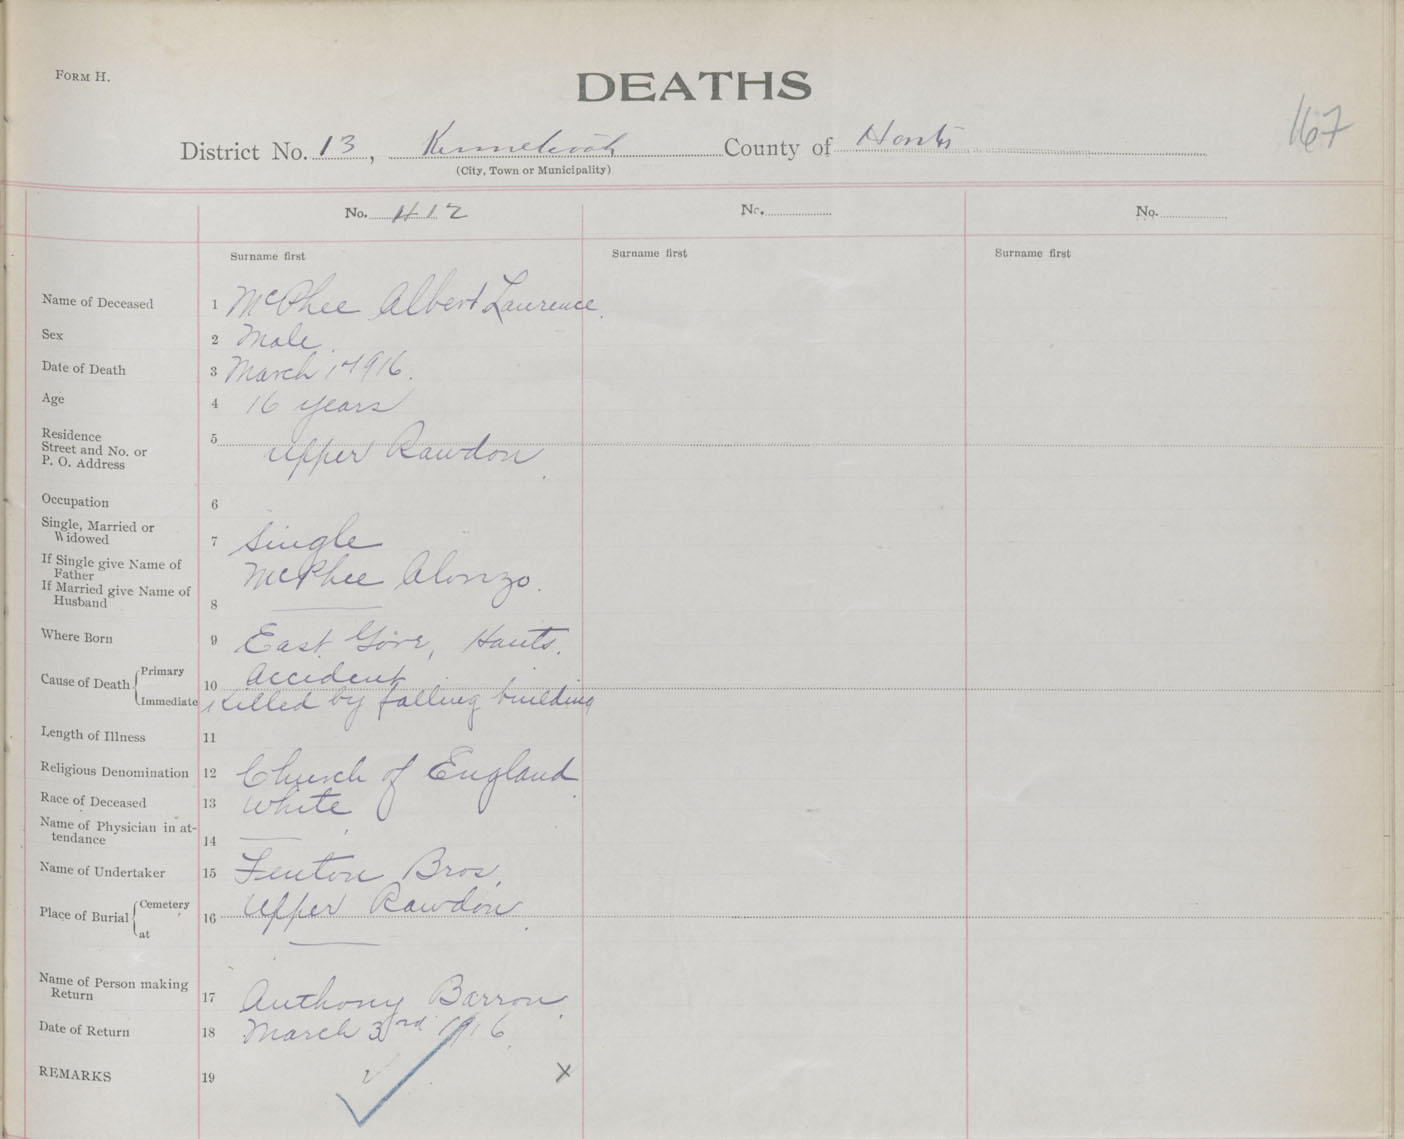 FORM H.
DEATHS
167
District No. 13, Kennetcook County of Hants
(City, Town or Municipality)
No. 412 No. No.
Surname first Surname first Surname first
Name of Deceased 1 McPhee Albert Laurence.
Sex 2 Male.
Date of Death 3 March 1st 1916.
Age 4 16 years
Residence
Street and No. or
P. O. Address 5 Upper Rawdon.
Occupation 6
Single, Married or
Widowed 7 Single
If Single give Name of
Father McPhee Alonzo.
If Married give Name of
Husband 8
Where Born 9 East Gore, Hants.
Cause of Death Primary 10 Accident
Immediate Killed by falling building
Length of Illness 11
Religious Denomination 12 Church of England
Race of Deceased 13 White
Name of Physician in at-
tendance 14
Name of Undertaker 15 Fenton Bros.
Place of Burial Cemetery 16 Upper Rawdon.
at
Name of Person making
Return 17 Anthony Barron.
Date of Return 18 March 3rd 1916.
REMARKS 19 X